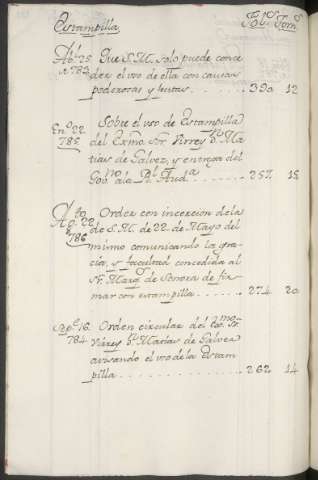 Estampilla. Fol.s Tom.s
Ab.l 25 Que S.M. solo puede conce
782 der el uso de ella con causas
poderosas y justas . . . . . . 390 12
En.o 22 Sobre el uso de Estampilla
785 del Exmo. Sor. Virrey D.n Ma
tias de Galvez, y entrega del
Gov.no a la R.l Aud.a . . . . . . 257 15
Ag.to 22 Orden con insercion de la
786 de S.M. de 22 de Mayo del
mismo comunicando la gra
cia, y facultad concedida al
S.r Marq.s de Sonora de fir
mar con estampilla . . . . . 274 20
Sep.e 16 Orden circular del Exmo. Sr.
784 Virrey D.n Matias de Galvez
avisando el uso de la Estam
pilla . . . . . . . . . . . . 262 14